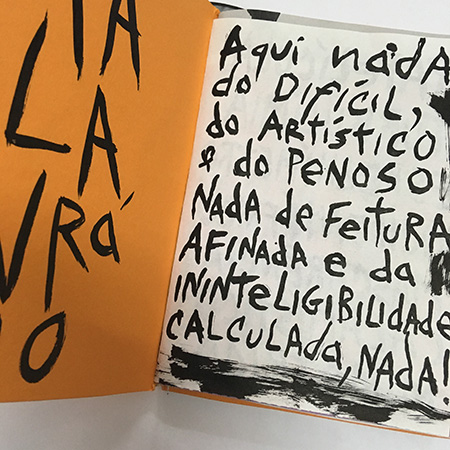 IA
LA
VRÁ
IO
Aquí nada
do Difícil,
do Artístico
e do Penoso
Nada de Feitura
Afinada e da
Ininteligibilidade
Calculada, Nada!